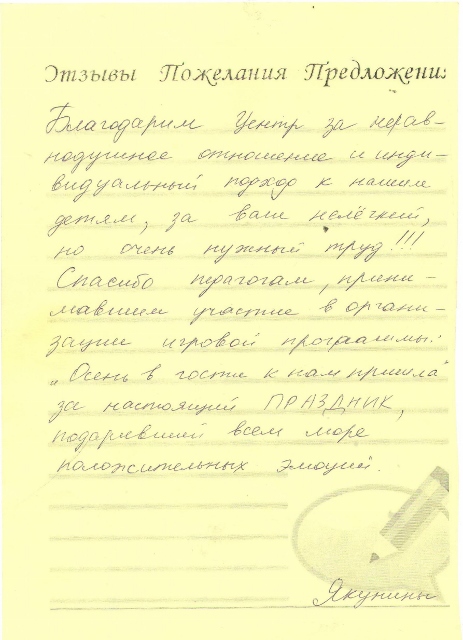 Отзывы Пожелания Предложения
Благодарим Центр за нерав-
нодушное отношение и инди-
видуальный подход к нашим
детям, за ваш нелёгкий,
но очень нужный труд!!!
Спасибо педагогам, прини-
мавшим участие в органи-
зации игровой программы:
„Осень в гости к нам пришла"
за настоящий ПРАЗДНИК,
подаривший всем море
положительных эмоций.
Якунины